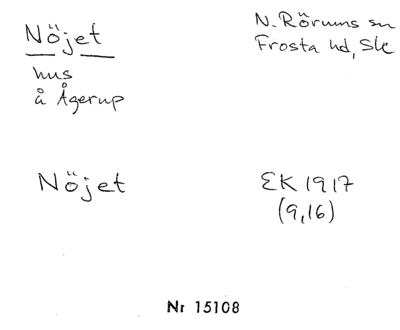 Nöjet
hus
å Ågerup
N. Rörums sn
Frosta hd, Sk
Nöjet
EK 1917
(9,16)
Nr 15108